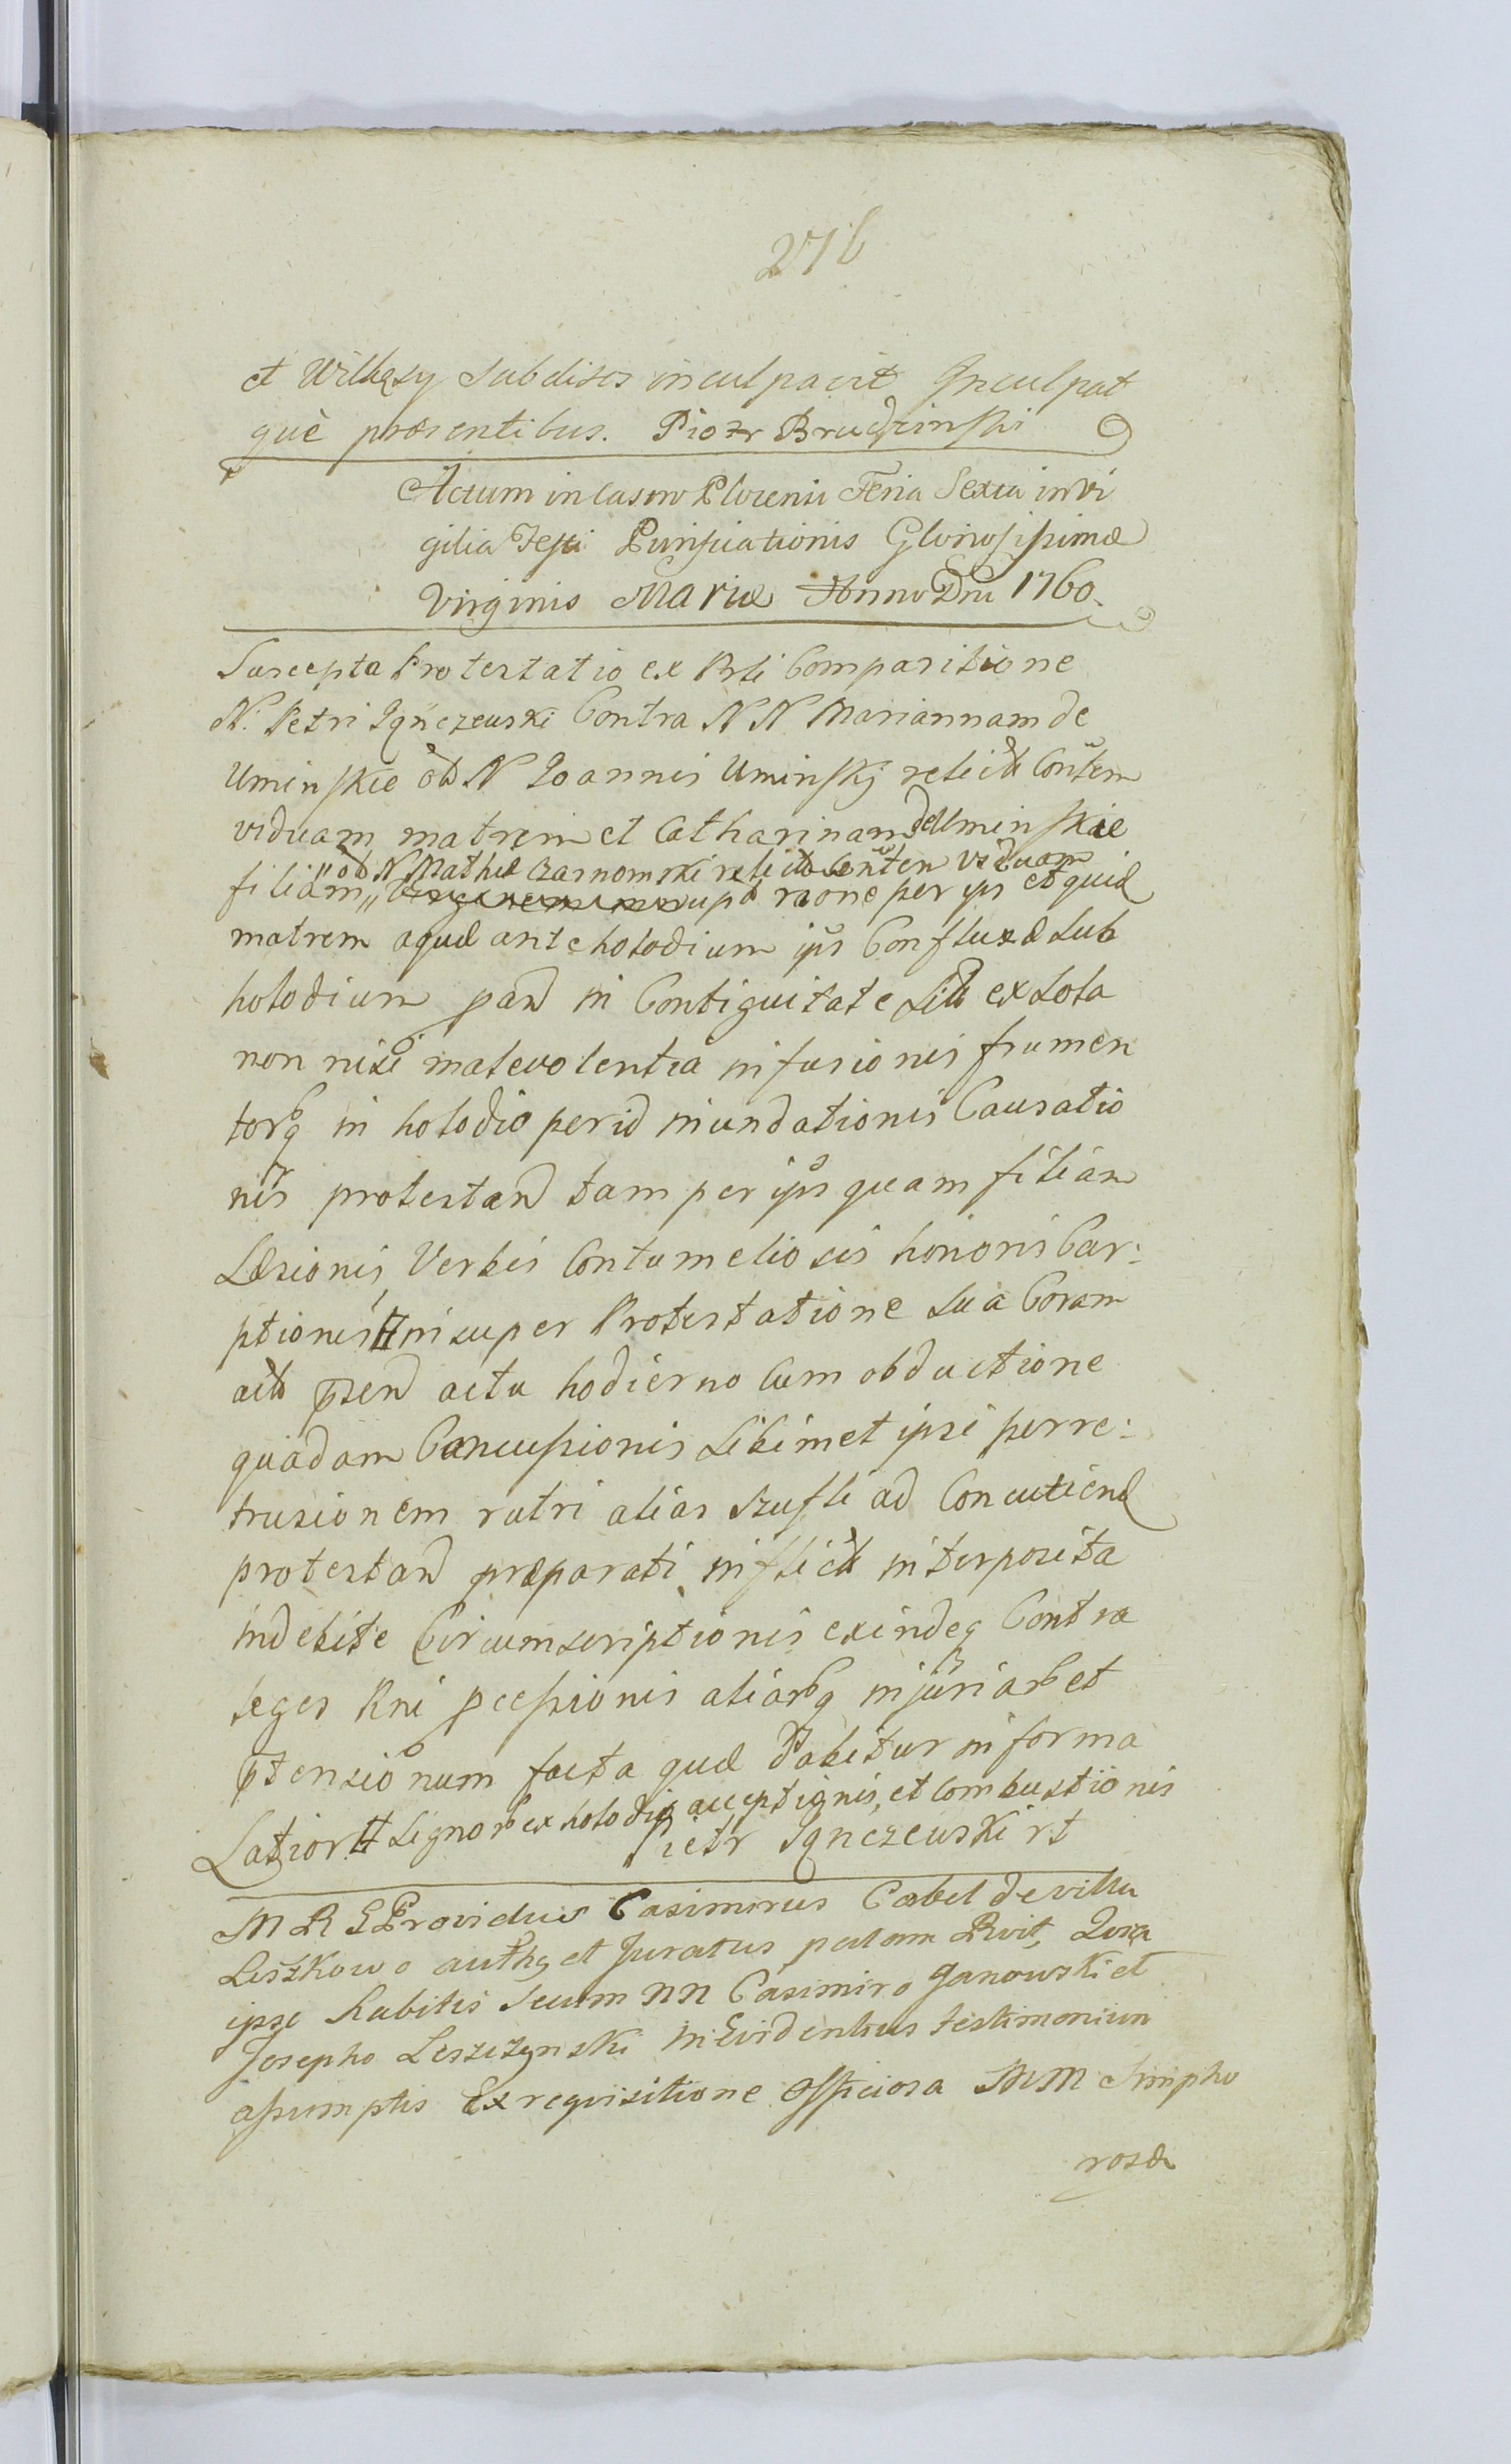 276
et Wilkęzy Subditos inculpavit Inculpat
què præsentibus. Piotr Brudzinski
Actum in Castro Plocensi Feria Sexta in Vi
gilia Festi Purificationis Gloriosissimæ
Virginis Mariæ Anno Dni 1760.
Suscepta Protestatio ex Psti Comparitione
N. Petri Iqnczewski Contra N N Mariannam de
Uminskie ob N Joannis Uminskj relictã Contem
viduam matrem et Catharinam de Uminskie
"ob N Mathiæ Czarnomski relictã Conten viduam
filiam,, raone per ips et quid
matrem aquæ ante holodium ips Confluxæ sub
holodium pand in Contiguitate Sitã ex Sola
non nisi malevolentia infusionis frumen
torq in holodio per id inundationis Causatio
nis protestand tam per ips quam filiam
Læsionis Verbis Contumeliosis honoris Car:
ptionis # insuper Protestatione sua Coram
actis psend actu hodierno Cum obductione
quadam Concussionis Sibimet ipsi per re:
trusionem rutri alias szufli ad Concutiend
protestand præparati inflictã interposita
indebite Circumscriptionis exindeq Contra
leges Rni pcessionis aliarq injuriar et
ptensionum facta quæ dabitur in forma
Latiori # Lignor ex holodio accept ignis, et Combustionis
Pietr Iqnczewski rt
M R G Providus Casimirus Cabel de villa
Liszkowo auth et Juratus palam Rvit, Quia
ipse habitis Secum NN Casimiro Janowski et
Josepho Leszczynski in Evidentius testimonium
assumptis Ex requisitione officiosa MM Simpho
rosæ